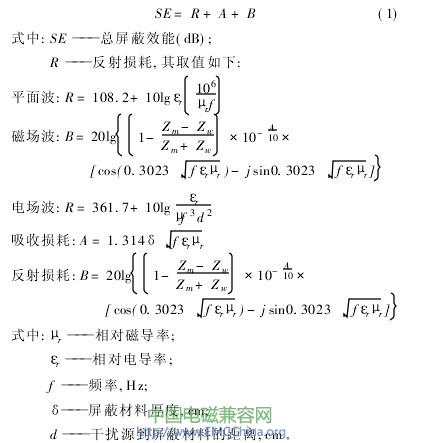 SE = R + A + B (1)
式中: SE ——总屏蔽效能(dB);
R ——反射损耗, 其取值如下:
平面波: R = 108.2 + 10lg εr ( 10^6 / μr f )
磁场波: B = 20lg { ( 1 - (Zm - Zw) / (Zm + Zw) ) × 10^(-A/10) ×
[cos(0.3023 √(f εr μr)) - j sin0.3023 √(f εr μr)] }
电场波: R = 361.7 + 10lg εr / (μr f^3 d^2)
吸收损耗: A = 1.314δ √(f εr μr)
反射损耗: B = 20lg { ( 1 - (Zm - Zw) / (Zm + Zw) ) × 10^(-A/10) ×
[cos(0.3023 √(f εr μr)) - j sin0.3023 √(f εr μr)] }
式中: μr ——相对磁导率;
εr ——相对电导率;
f ——频率, Hz;
δ ——屏蔽材料厚度, cm;
中国电磁兼容网
d ——干扰源到屏蔽材料的距离, cm。